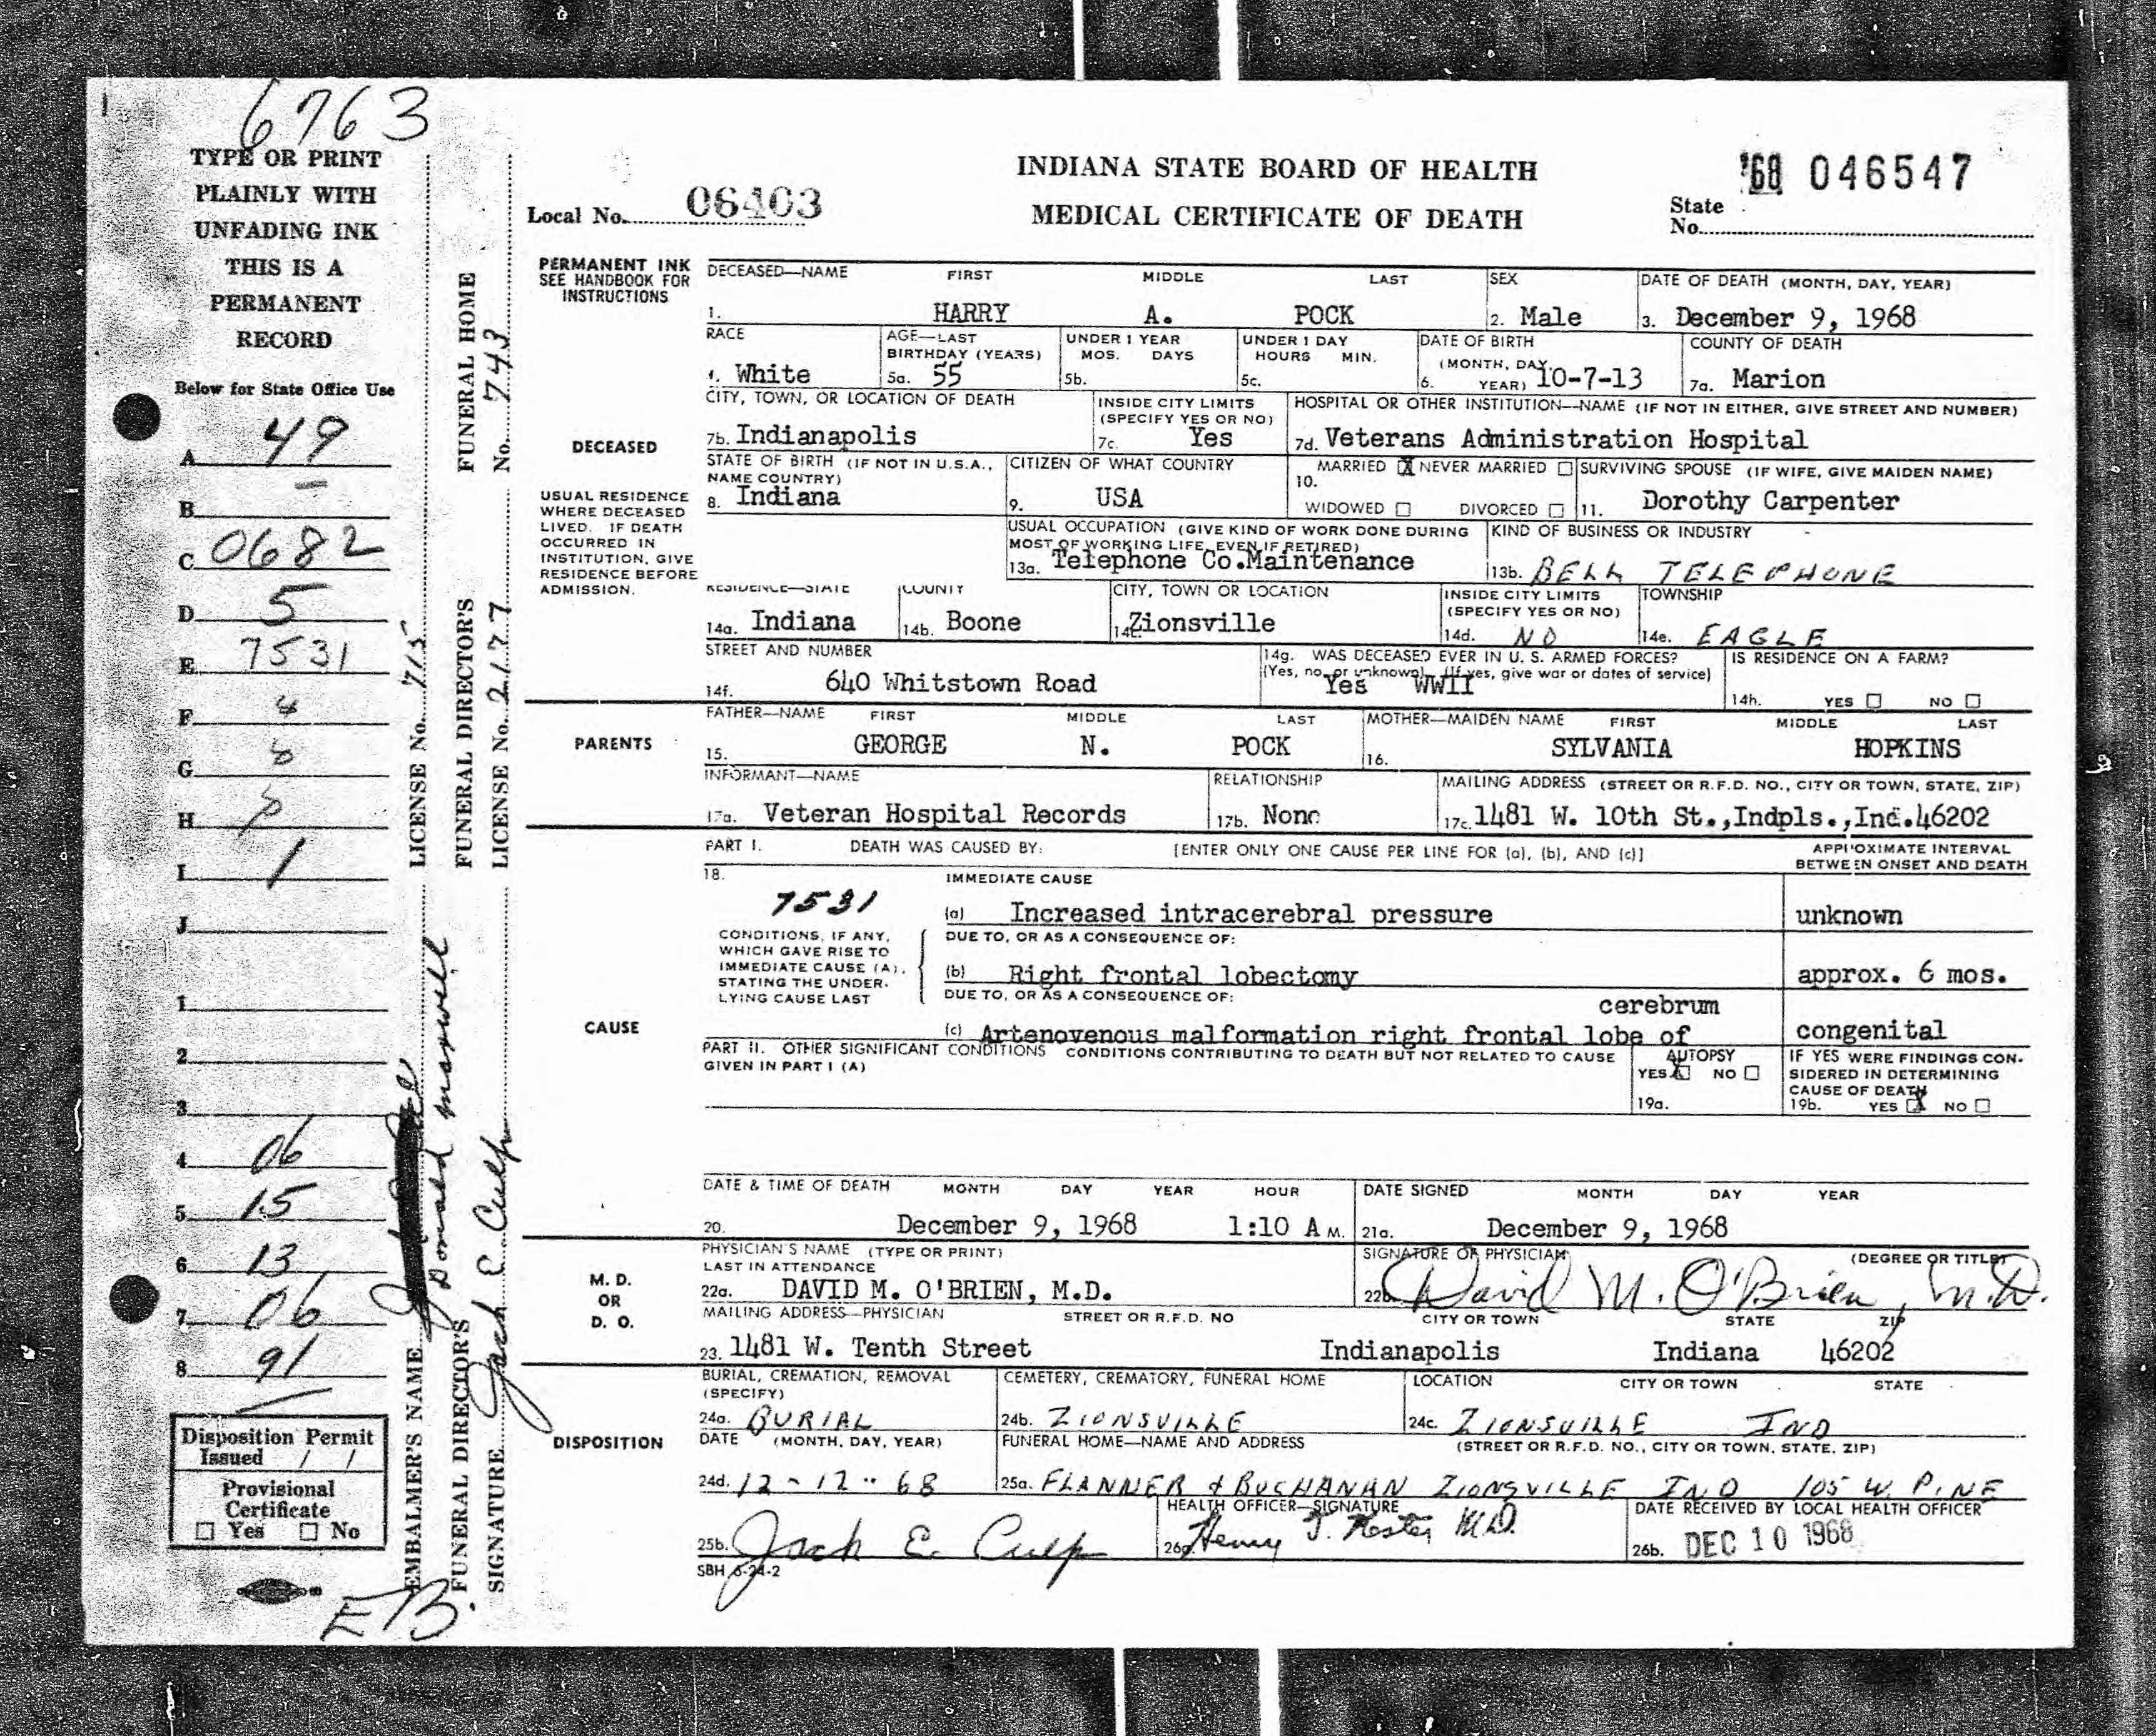 6763
TYPE OR PRINT
PLAINLY WITH
UNFADING INK
THIS IS A
PERMANENT
RECORD
Below for State Office Use
A 49
B –
C 0682
D 5
E 7531
F
G
H
I 1
J
1
2
3
4 06
5 15
6 13
7 06
8 91
Disposition Permit
Issued / /
Provisional
Certificate
☐ Yes ☐ No
EB.
EMBALMER'S NAME Donald Maxwell LICENSE No. 715
FUNERAL DIRECTOR'S SIGNATURE Jack E. Culp FUNERAL DIRECTOR'S LICENSE No. 2177
FUNERAL HOME No. 743
INDIANA STATE BOARD OF HEALTH
MEDICAL CERTIFICATE OF DEATH
Local No. 06403
'68 046547
State
No.
PERMANENT INK
SEE HANDBOOK FOR
INSTRUCTIONS
DECEASED—NAME FIRST MIDDLE LAST SEX DATE OF DEATH (MONTH, DAY, YEAR)
1. HARRY A. POCK 2. Male 3. December 9, 1968
RACE AGE—LAST BIRTHDAY (YEARS) UNDER 1 YEAR MOS. DAYS UNDER 1 DAY HOURS MIN. DATE OF BIRTH (MONTH, DAY, YEAR) COUNTY OF DEATH
4. White 5a. 55 5b. 5c. 6. 10-7-13 7a. Marion
CITY, TOWN, OR LOCATION OF DEATH INSIDE CITY LIMITS (SPECIFY YES OR NO) HOSPITAL OR OTHER INSTITUTION—NAME (IF NOT IN EITHER, GIVE STREET AND NUMBER)
DECEASED
7b. Indianapolis 7c. Yes 7d. Veterans Administration Hospital
STATE OF BIRTH (IF NOT IN U.S.A., NAME COUNTRY) CITIZEN OF WHAT COUNTRY MARRIED ☒ NEVER MARRIED ☐ SURVIVING SPOUSE (IF WIFE, GIVE MAIDEN NAME)
8. Indiana 9. USA 10. WIDOWED ☐ DIVORCED ☐ 11. Dorothy Carpenter
USUAL RESIDENCE
WHERE DECEASED
LIVED. IF DEATH
OCCURRED IN
INSTITUTION, GIVE
RESIDENCE BEFORE
ADMISSION.
USUAL OCCUPATION (GIVE KIND OF WORK DONE DURING MOST OF WORKING LIFE, EVEN IF RETIRED) KIND OF BUSINESS OR INDUSTRY
13a. Telephone Co.Maintenance 13b. BELL TELEPHONE
RESIDENCE—STATE COUNTY CITY, TOWN OR LOCATION INSIDE CITY LIMITS (SPECIFY YES OR NO) TOWNSHIP
14a. Indiana 14b. Boone 14c. Zionsville 14d. NO 14e. EAGLE
STREET AND NUMBER 14g. WAS DECEASED EVER IN U. S. ARMED FORCES? (Yes, no, or unknown) (If yes, give war or dates of service) IS RESIDENCE ON A FARM?
14f. 640 Whitstown Road Yes WWII 14h. YES ☐ NO ☐
PARENTS
FATHER—NAME FIRST MIDDLE LAST MOTHER—MAIDEN NAME FIRST MIDDLE LAST
15. GEORGE N. POCK 16. SYLVANIA HOPKINS
INFORMANT—NAME RELATIONSHIP MAILING ADDRESS (STREET OR R.F.D. NO., CITY OR TOWN, STATE, ZIP)
17a. Veteran Hospital Records 17b. None 17c. 1481 W. 10th St.,Indpls.,Ind.46202
PART I. DEATH WAS CAUSED BY: [ENTER ONLY ONE CAUSE PER LINE FOR (a), (b), AND (c)] APPROXIMATE INTERVAL BETWEEN ONSET AND DEATH
18. IMMEDIATE CAUSE
7531
(a) Increased intracerebral pressure unknown
CAUSE
CONDITIONS, IF ANY,
WHICH GAVE RISE TO
IMMEDIATE CAUSE (A),
STATING THE UNDER-
LYING CAUSE LAST
DUE TO, OR AS A CONSEQUENCE OF:
(b) Right frontal lobectomy approx. 6 mos.
DUE TO, OR AS A CONSEQUENCE OF:
cerebrum
(c) Artenovenous malformation right frontal lobe of congenital
PART II. OTHER SIGNIFICANT CONDITIONS CONDITIONS CONTRIBUTING TO DEATH BUT NOT RELATED TO CAUSE GIVEN IN PART I (A)
AUTOPSY YES ☒ NO ☐ 19a.
IF YES WERE FINDINGS CONSIDERED IN DETERMINING CAUSE OF DEATH 19b. YES ☒ NO ☐
DATE & TIME OF DEATH MONTH DAY YEAR HOUR DATE SIGNED MONTH DAY YEAR
20. December 9, 1968 1:10 A M. 21a. December 9, 1968
M. D.
OR
D. O.
PHYSICIAN'S NAME (TYPE OR PRINT) LAST IN ATTENDANCE SIGNATURE OF PHYSICIAN (DEGREE OR TITLE)
22a. DAVID M. O'BRIEN, M.D. 22b. David M. O'Brien, M.D.
MAILING ADDRESS—PHYSICIAN STREET OR R.F.D. NO CITY OR TOWN STATE ZIP
23. 1481 W. Tenth Street Indianapolis Indiana 46202
DISPOSITION
BURIAL, CREMATION, REMOVAL (SPECIFY) CEMETERY, CREMATORY, FUNERAL HOME LOCATION CITY OR TOWN STATE
24a. BURIAL 24b. ZIONSVILLE 24c. ZIONSVILLE IND
DATE (MONTH, DAY, YEAR) FUNERAL HOME—NAME AND ADDRESS (STREET OR R.F.D. NO., CITY OR TOWN, STATE, ZIP)
24d. 12-12-68 25a. FLANNER & BUCHANAN ZIONSVILLE IND 105 W. PINE
HEALTH OFFICER—SIGNATURE DATE RECEIVED BY LOCAL HEALTH OFFICER
25b. Jack E. Culp 26a. Henry M.D. 26b. DEC 10 1968
SBH 6-24-2